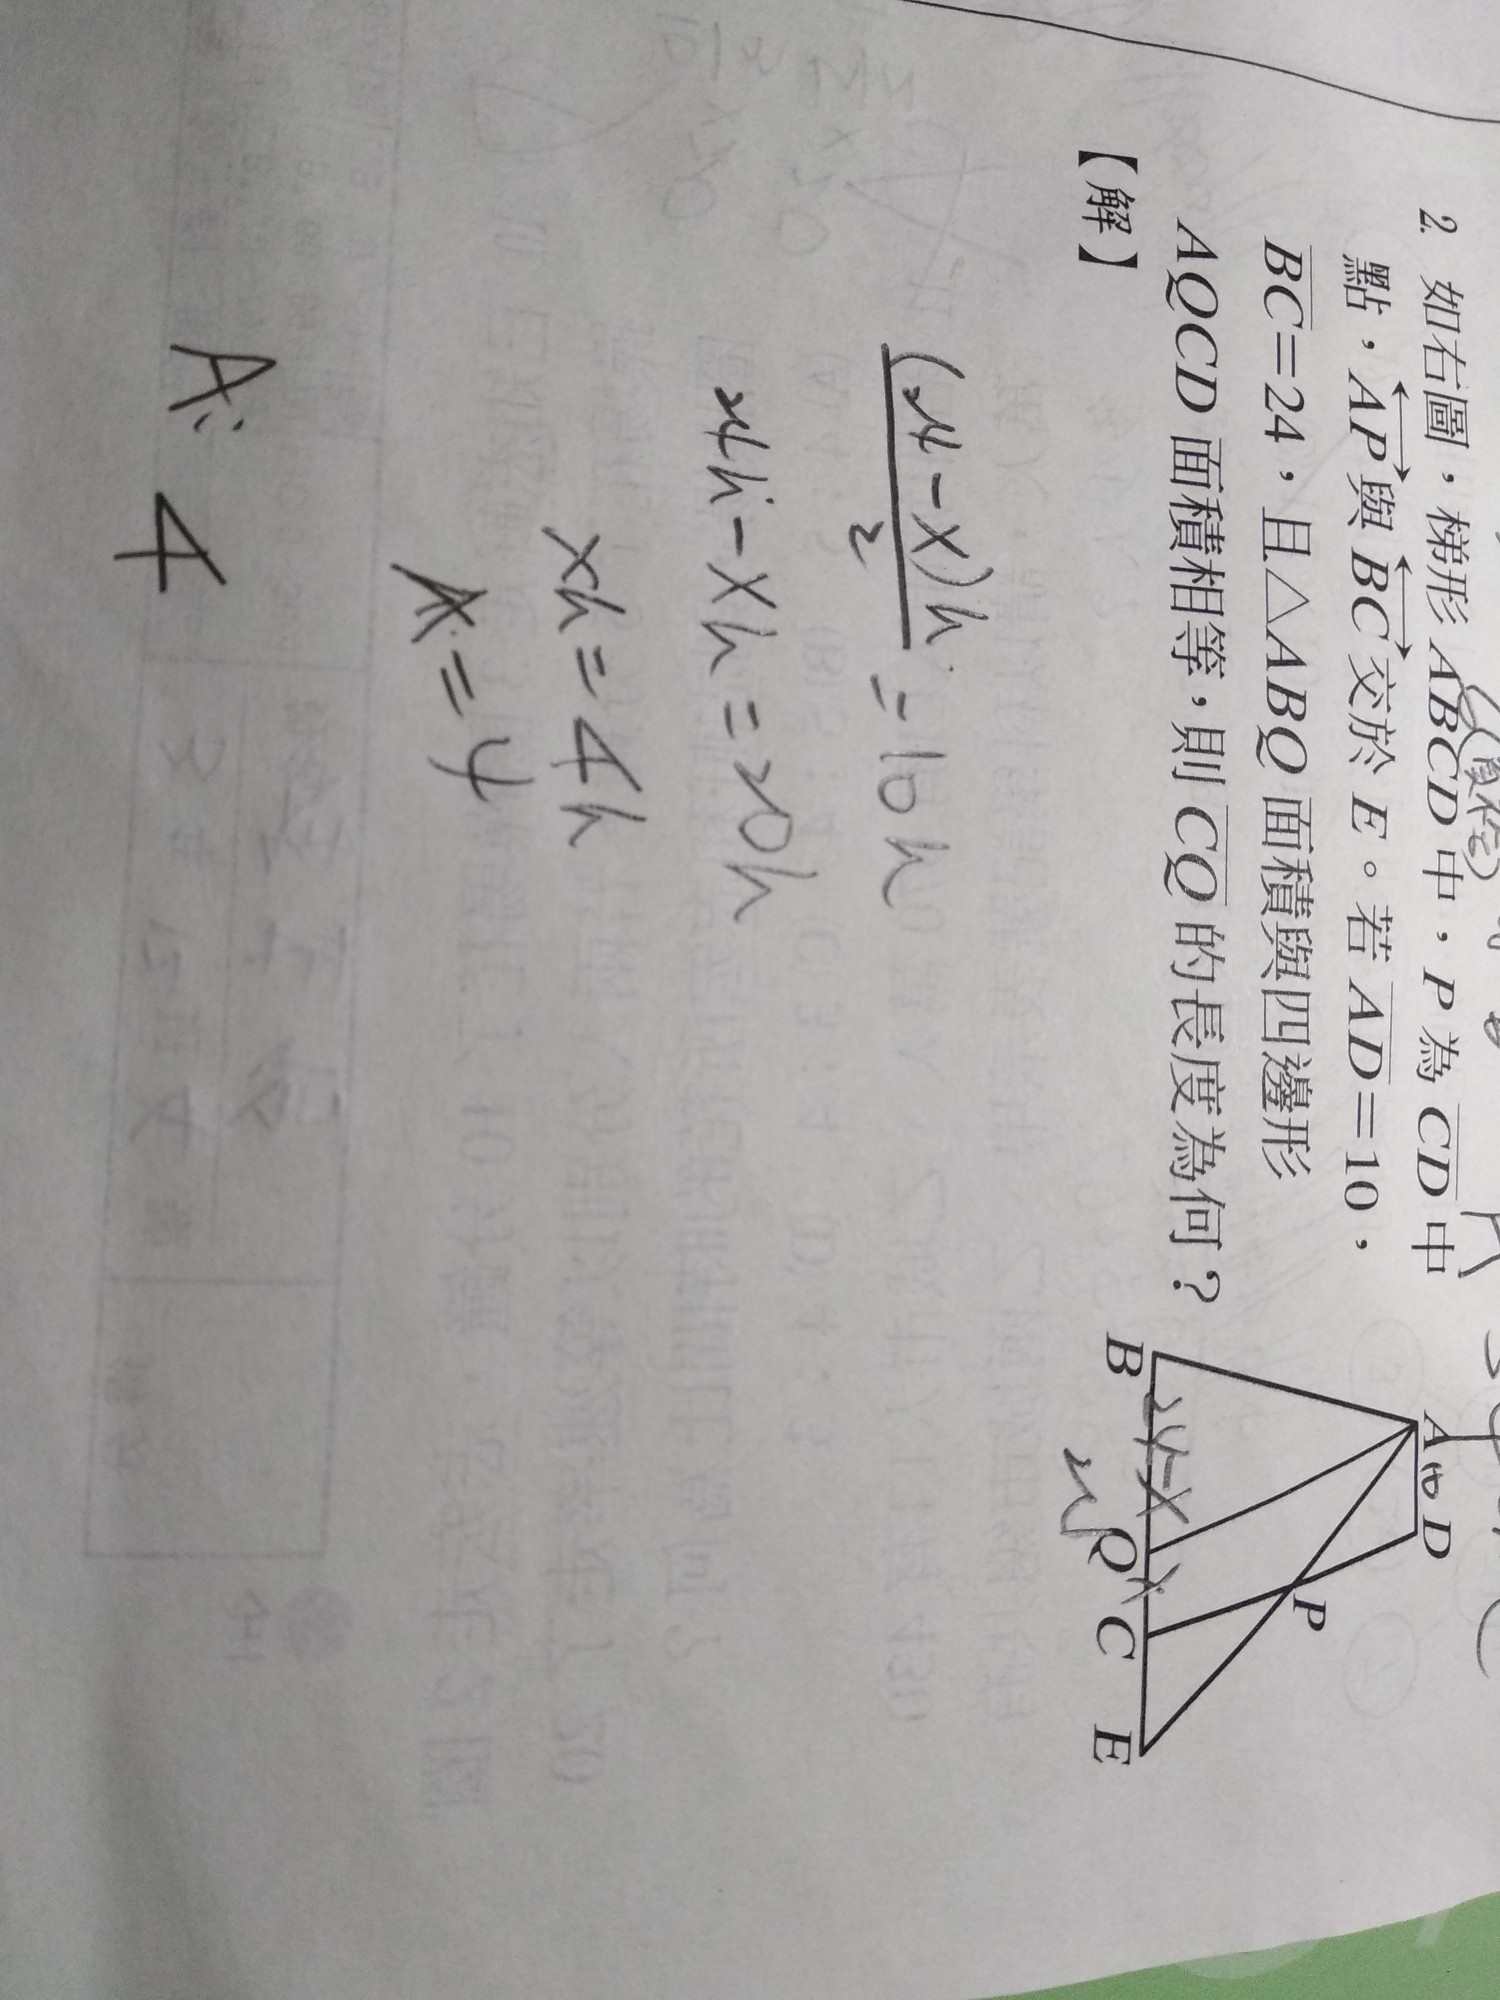 2. 如右圖，梯形 ABCD 中，P 為 CD 中
點，AP 與 BC 交於 E。若 AD=10，
BC=24，且△ABQ 面積與四邊形
AQCD 面積相等，則 CQ 的長度為何？
【解】
A 10 D
P
B 24-x Q x C E
(24-x)h/2 = 10h
24h-xh=20h
xh=4h
x=4
A: 4